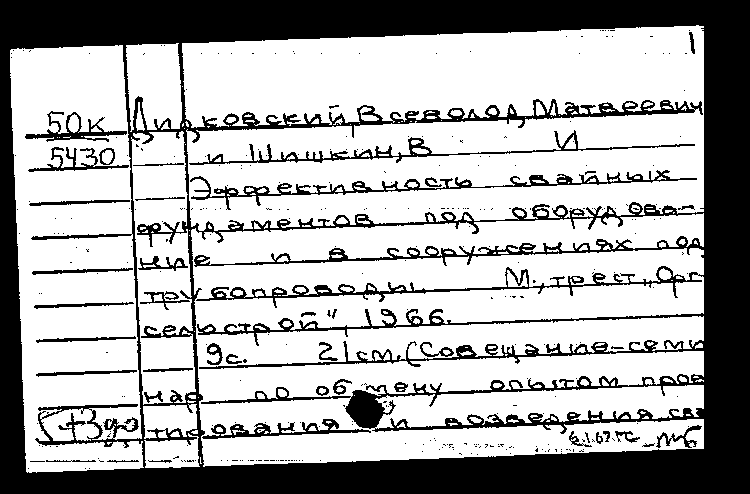 1
50к Дидковский, Всеволод Матвеевич
5430 и Шишкин, В И
Эффективность свайных
фундаментов под оборудова-
ние и в сооружениях под
трубопроводы. М., трест „Орг
сельстрой", 1966.
9с. 21см. (Совещание-семи
нар по обмену опытом прое
тирования и возведения сва